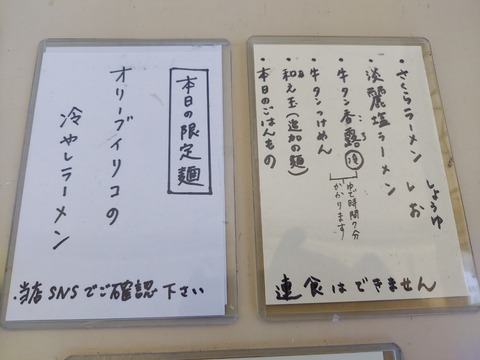 本日の限定麺
オリーブイリコの
冷やしラーメン
当店SNSでご確認下さい
・さくらラーメン しお
しょうゆ
・淡麗塩ラーメン
・牛タン香露 凍
こうろ
・牛タンつけめん
ゆで時間7分
かかります
・和え玉(追加の麺)
・本日のごはんもの
連食はできません